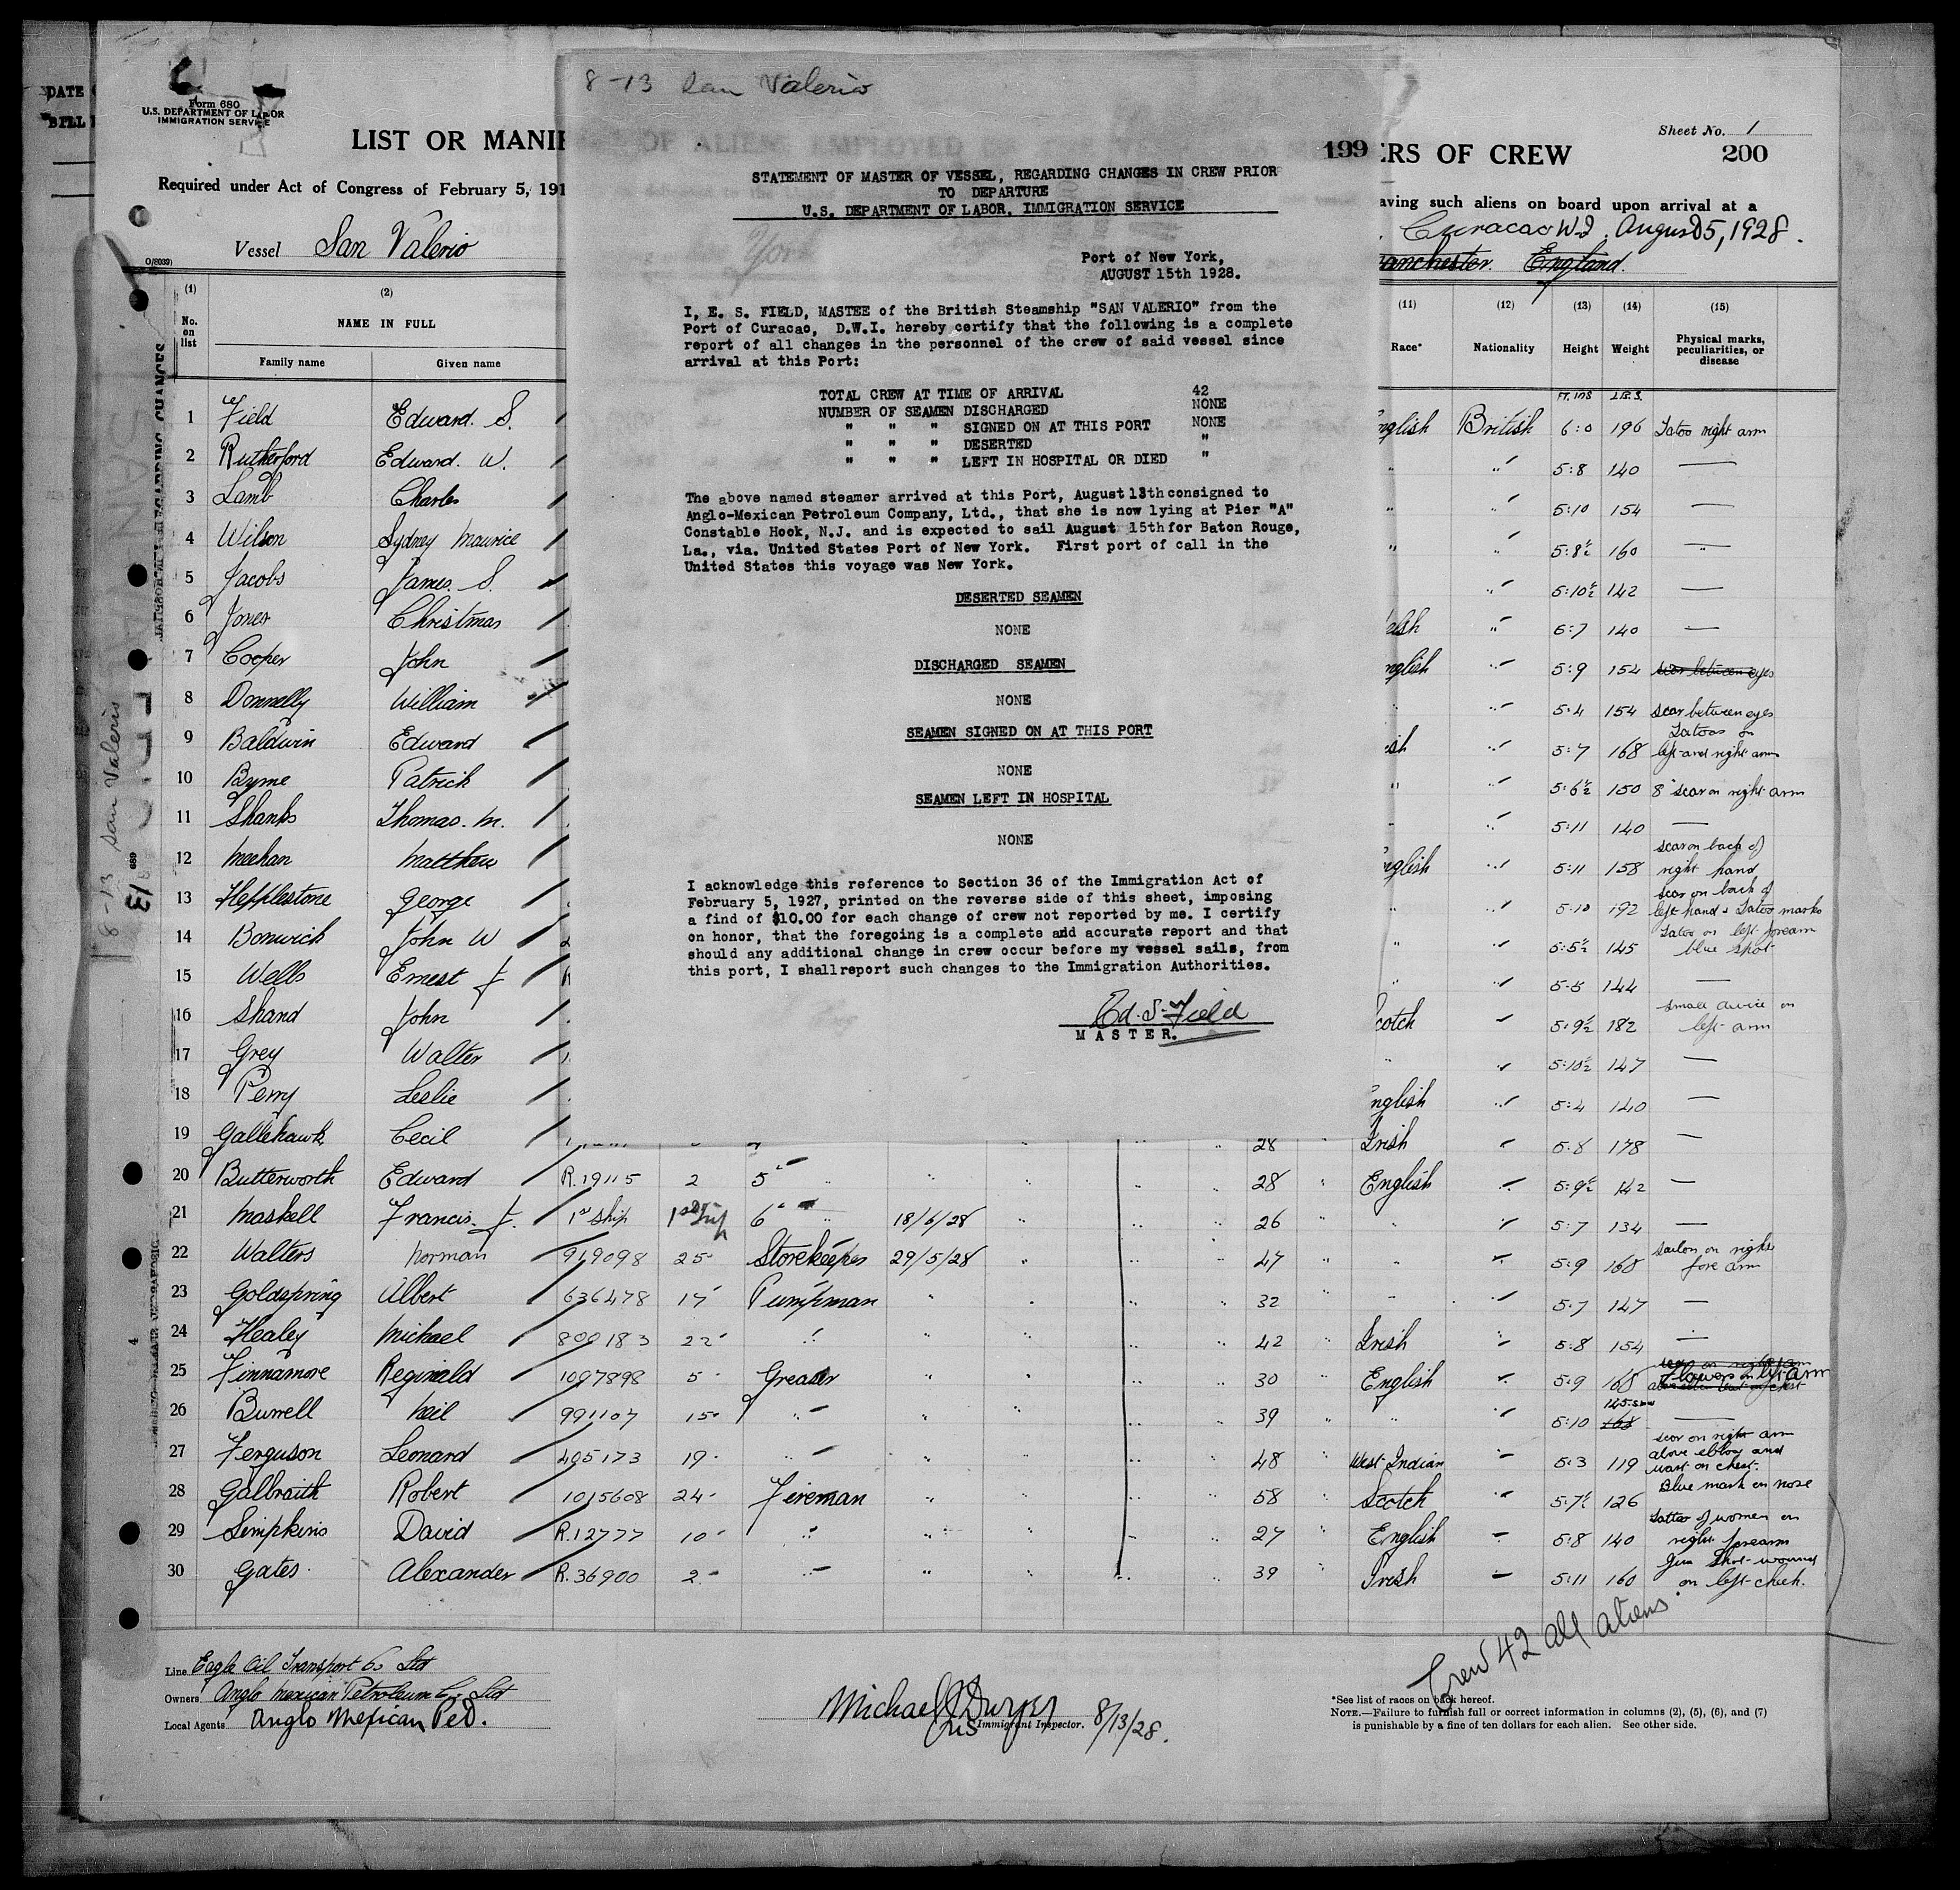 DATE
BILL
Form 680
U.S. DEPARTMENT OF LABOR
IMMIGRATION SERVICE
LIST OR MANIF
Required under Act of Congress of February 5, 191
Vessel San Valerio
O/(8039)
(1) (2)
No. on list
NAME IN FULL
Family name Given name
1 Field Edward. S.
2 Rutherford Edward. W.
3 Lamb Charles
4 Wilson Sydney Maurice
5 Jacobs James. S.
6 Jones Christmas
7 Cooper John
8 Donnelly William
9 Baldwin Edward
10 Byrne Patrick
11 Shanks Thomas. M.
12 Meehan Matthew
13 Hepplestone George
14 Bonwick John W
15 Wells Ernest J
16 Shand John
17 Grey Walter
18 Perry Leslie
19 Gallehawk Cecil
8-13 San Valerio
199
STATEMENT OF MASTER OF VESSEL, REGARDING CHANGES IN CREW PRIOR
TO DEPARTURE
U.S. DEPARTMENT OF LABOR, IMMIGRATION SERVICE
Port of New York,
AUGUST 15th 1928.
I, E. S. FIELD, MASTEE of the British Steamship "SAN VALERIO" from the
Port of Curacao, D.W.I. hereby certify that the following is a complete
report of all changes in the personnel of the crew of said vessel since
arrival at this Port:
TOTAL CREW AT TIME OF ARRIVAL 42
NUMBER OF SEAMEN DISCHARGED NONE
" " " SIGNED ON AT THIS PORT NONE
" " " DESERTED "
" " " LEFT IN HOSPITAL OR DIED "
The above named steamer arrived at this Port, August 13th consigned to
Anglo-Mexican Petroleum Company, Ltd., that she is now lying at Pier "A"
Constable Hook, N.J. and is expected to sail August 15th for Baton Rouge,
La., via. United States Port of New York. First port of call in the
United States this voyage was New York.
DESERTED SEAMEN
NONE
DISCHARGED SEAMEN
NONE
SEAMEN SIGNED ON AT THIS PORT
NONE
SEAMEN LEFT IN HOSPITAL
NONE
I acknowledge this reference to Section 36 of the Immigration Act of
February 5, 1927, printed on the reverse side of this sheet, imposing
a find of $10.00 for each change of crew not reported by me. I certify
on honor, that the foregoing is a complete and accurate report and that
should any additional change in crew occur before my vessel sails, from
this port, I shall report such changes to the Immigration Authorities.
Ed. S. Field
MASTER.
Sheet No. 1
RS OF CREW 200
aving such aliens on board upon arrival at a
Curacao W.I. August 5, 1928.
anchester. England.
(11) (12) (13) (14) (15)
Race* Nationality Height Weight Physical marks, peculiarities, or disease
FT. INS LBS.
nglish British 6:0 196 Tatoo right arm
" 5:8 140 —
" " 5:10 154 —
" " 5:8½ 160 —
" 5:10½ 142 —
elsh " 5:7 140 —
nglish " 5:9 154 scar between eyes
" 5:4 154 scar between eyes
ish " 5:7 168 Tatoos on left and right arms
" " 5:6½ 150 8" scar on right arm
" " 5:11 140 —
nglish " 5:11 158 scar on back of right hand
" " 5:10 192 scar on back of left hand & Tatoo marks
" " 5:5½ 145 Tatoo on left forearm blue spot
" " 5:5 144 —
cotch " 5:9½ 182 small on left arm
" " 5:10½ 147 —
nglish " 5:4 140 —
28 " Irish " 5:8 178 —
20 Butterworth Edward R.19115 2 5" " " " 28 " English " 5:9½ 142 —
21 Maskell Francis. J. 1st Ship 1st Trip 6" " 18/6/28 " " 26 " " " 5:7 134 —
22 Walters Norman 949098 25 Storekeeper 29/5/28 " " 47 " " " 5:9 168 sailor on right fore arm
23 Goldspring Albert 636478 17 Pumpman " " " 32 " " " 5:7 147 —
24 Healey Michael 800183 22 " " " " 42 " Irish " 5:8 154 —
25 Finnamore Reginald 1097898 5 Greaser " " " 30 " English " 5:9 168 Flowers on left arm
26 Burrell Neil 991107 15 " " " " 39 " " " 5:10 168 145 —
27 Ferguson Leonard 405173 19 " " " " 48 West Indian " 5:3 119 scar on right arm above elbow and wart on chest.
28 Galbraith Robert 1015608 24 Fireman " " " 58 " Scotch " 5:7½ 126 Blue mark on nose
29 Simpkins David R.12777 10 " " " " 27 " English " 5:8 140 Tattoo of women on right forearm
30 Gates Alexander R.36900 2 " " " " 39 " Irish " 5:11 160 Gun shot wound on left cheek.
8-13 San Valerio
Crew 42 all aliens.
Line Eagle Oil Transport Co Ltd
Owners Anglo Mexican Petroleum Co. Ltd
Local Agents Anglo Mexican Pet.
Michael Dwyer
Immigrant Inspector. 8/13/28.
*See list of races on back hereof.
NOTE.—Failure to furnish full or correct information in columns (2), (5), (6), and (7)
is punishable by a fine of ten dollars for each alien. See other side.